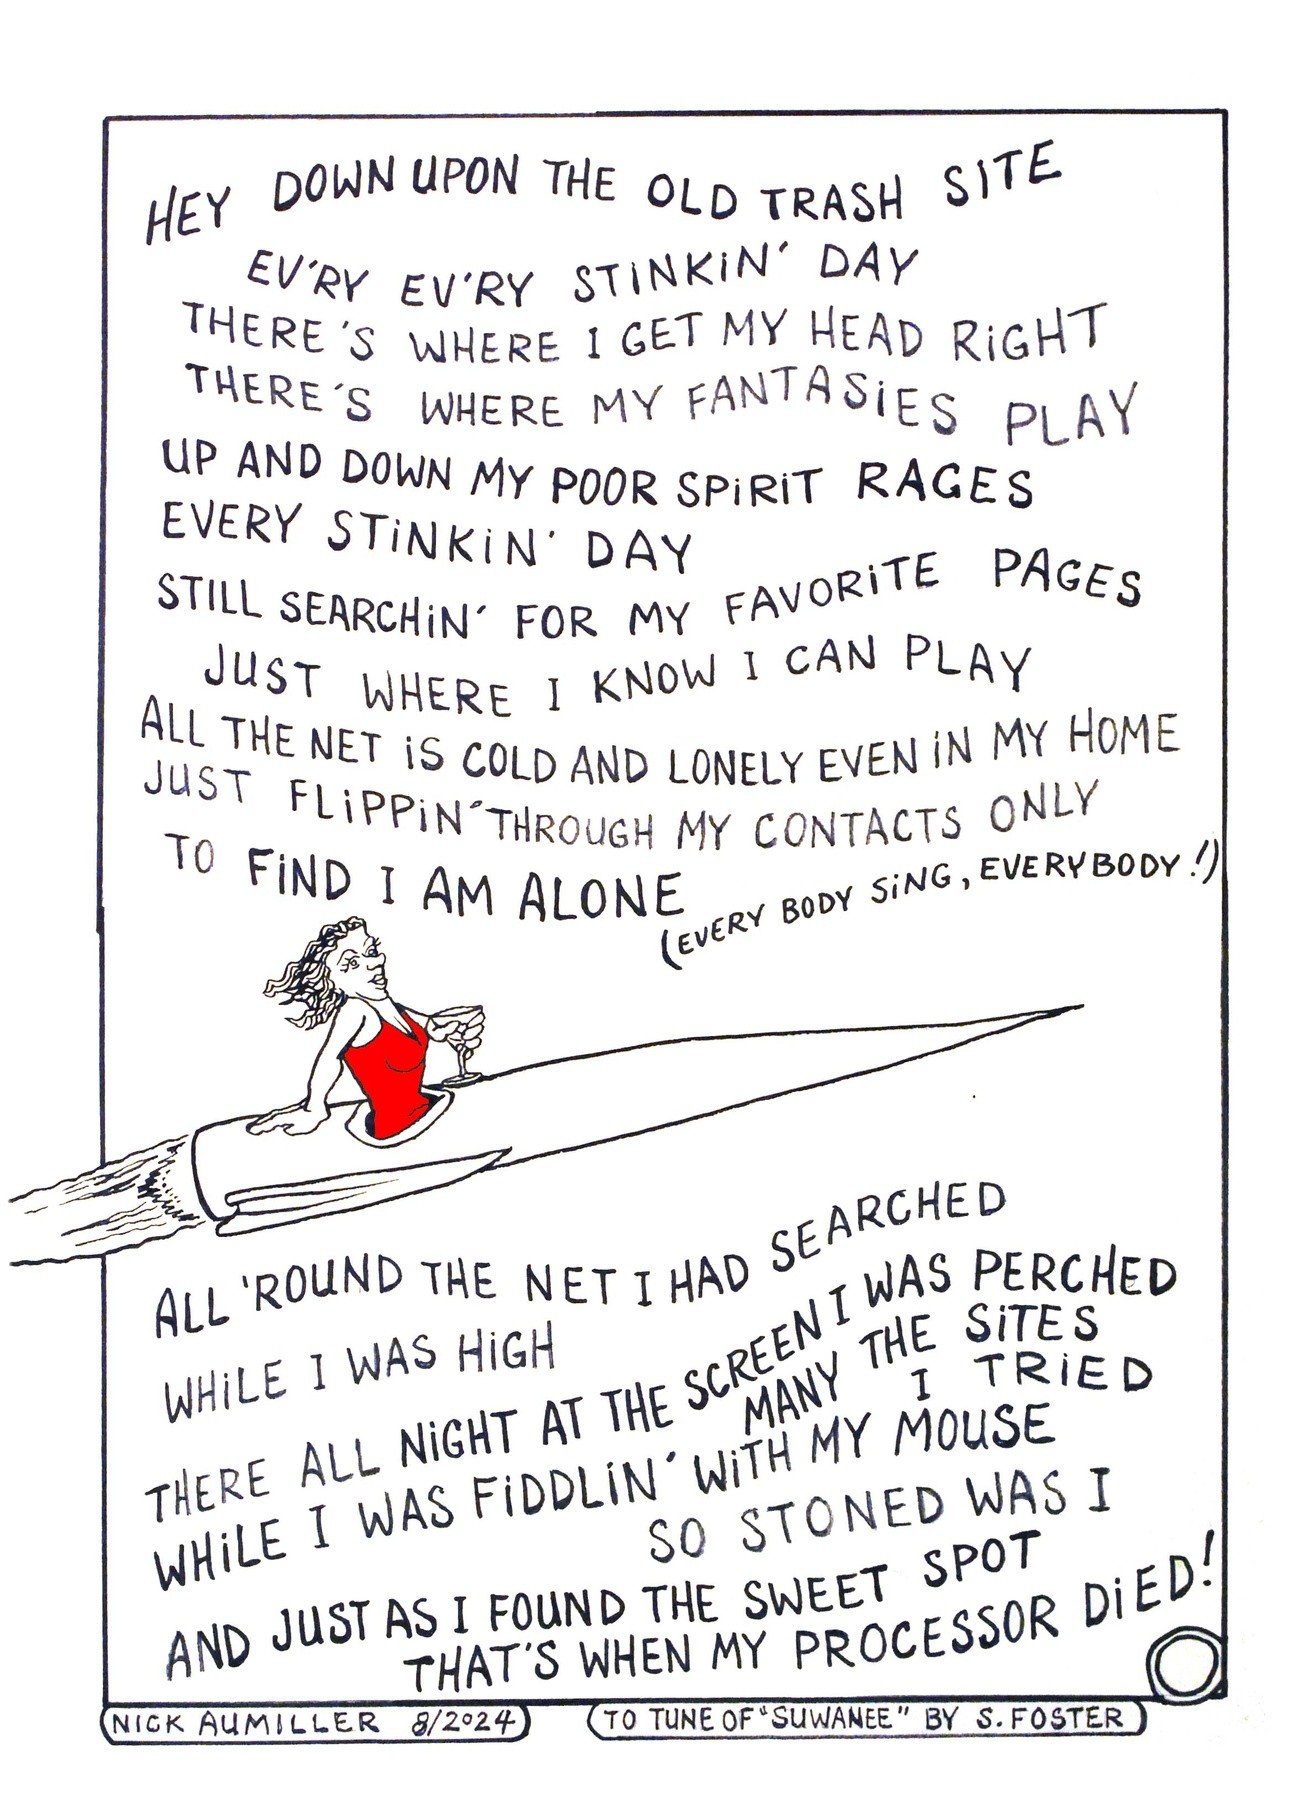 HEY DOWN UPON THE OLD TRASH SITE
EV'RY EV'RY STINKIN' DAY
THERE'S WHERE I GET MY HEAD RIGHT
THERE'S WHERE MY FANTASIES PLAY
UP AND DOWN MY POOR SPIRIT RAGES
EVERY STINKIN' DAY
STILL SEARCHIN' FOR MY FAVORITE PAGES
JUST WHERE I KNOW I CAN PLAY
ALL THE NET IS COLD AND LONELY EVEN IN MY HOME
JUST FLIPPIN' THROUGH MY CONTACTS ONLY
TO FIND I AM ALONE
(EVERY BODY SING, EVERYBODY!)
ALL 'ROUND THE NET I HAD SEARCHED
WHILE I WAS HIGH
THERE ALL NIGHT AT THE SCREEN I WAS PERCHED
MANY THE SITES
I TRIED
WHILE I WAS FIDDLIN' WITH MY MOUSE
SO STONED WAS I
AND JUST AS I FOUND THE SWEET SPOT
THAT'S WHEN MY PROCESSOR DIED!
NICK AUMILLER 8/2024
TO TUNE OF "SUWANEE" BY S. FOSTER